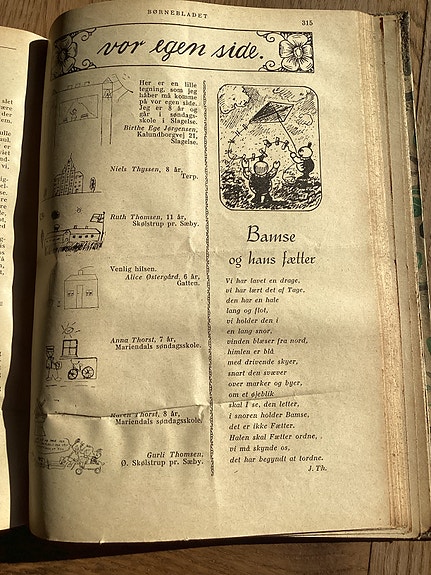 BØRNEBLADET
315
vor egen side.
Her er en lille
tegning, som jeg
håber må komme
på vor egen side.
Jeg er 8 år og
går i søndags-
skole i Slagelse.
Birthe Ege Jørgensen,
Kalundborgvej 21,
Slagelse.
Niels Thyssen, 8 år,
Terp.
Ruth Thomsen, 11 år,
Skølstrup pr. Sæby.
Venlig hilsen.
Alice Østergård, 6 år,
Gatten.
Anna Thorst, 7 år,
Mariendals søndagsskole.
Karen Thorst, 8 år,
Mariendals søndagsskole.
Gurli Thomsen,
Ø. Skølstrup pr. Sæby.
Bamse
og hans fætter
Vi har lavet en drage,
vi har lært det af Tage,
den har en hale
lang og flot,
vi holder den i
en lang snor,
vinden blæser fra nord,
himlen er blå
med drivende skyer,
snart den svæver
over marker og byer,
om et øjeblik
skal I se, den letter,
i snoren holder Bamse,
det er ikke Fætter.
Halen skal Fætter ordne,
vi må skynde os,
det har begyndt at tordne.
J. Th.